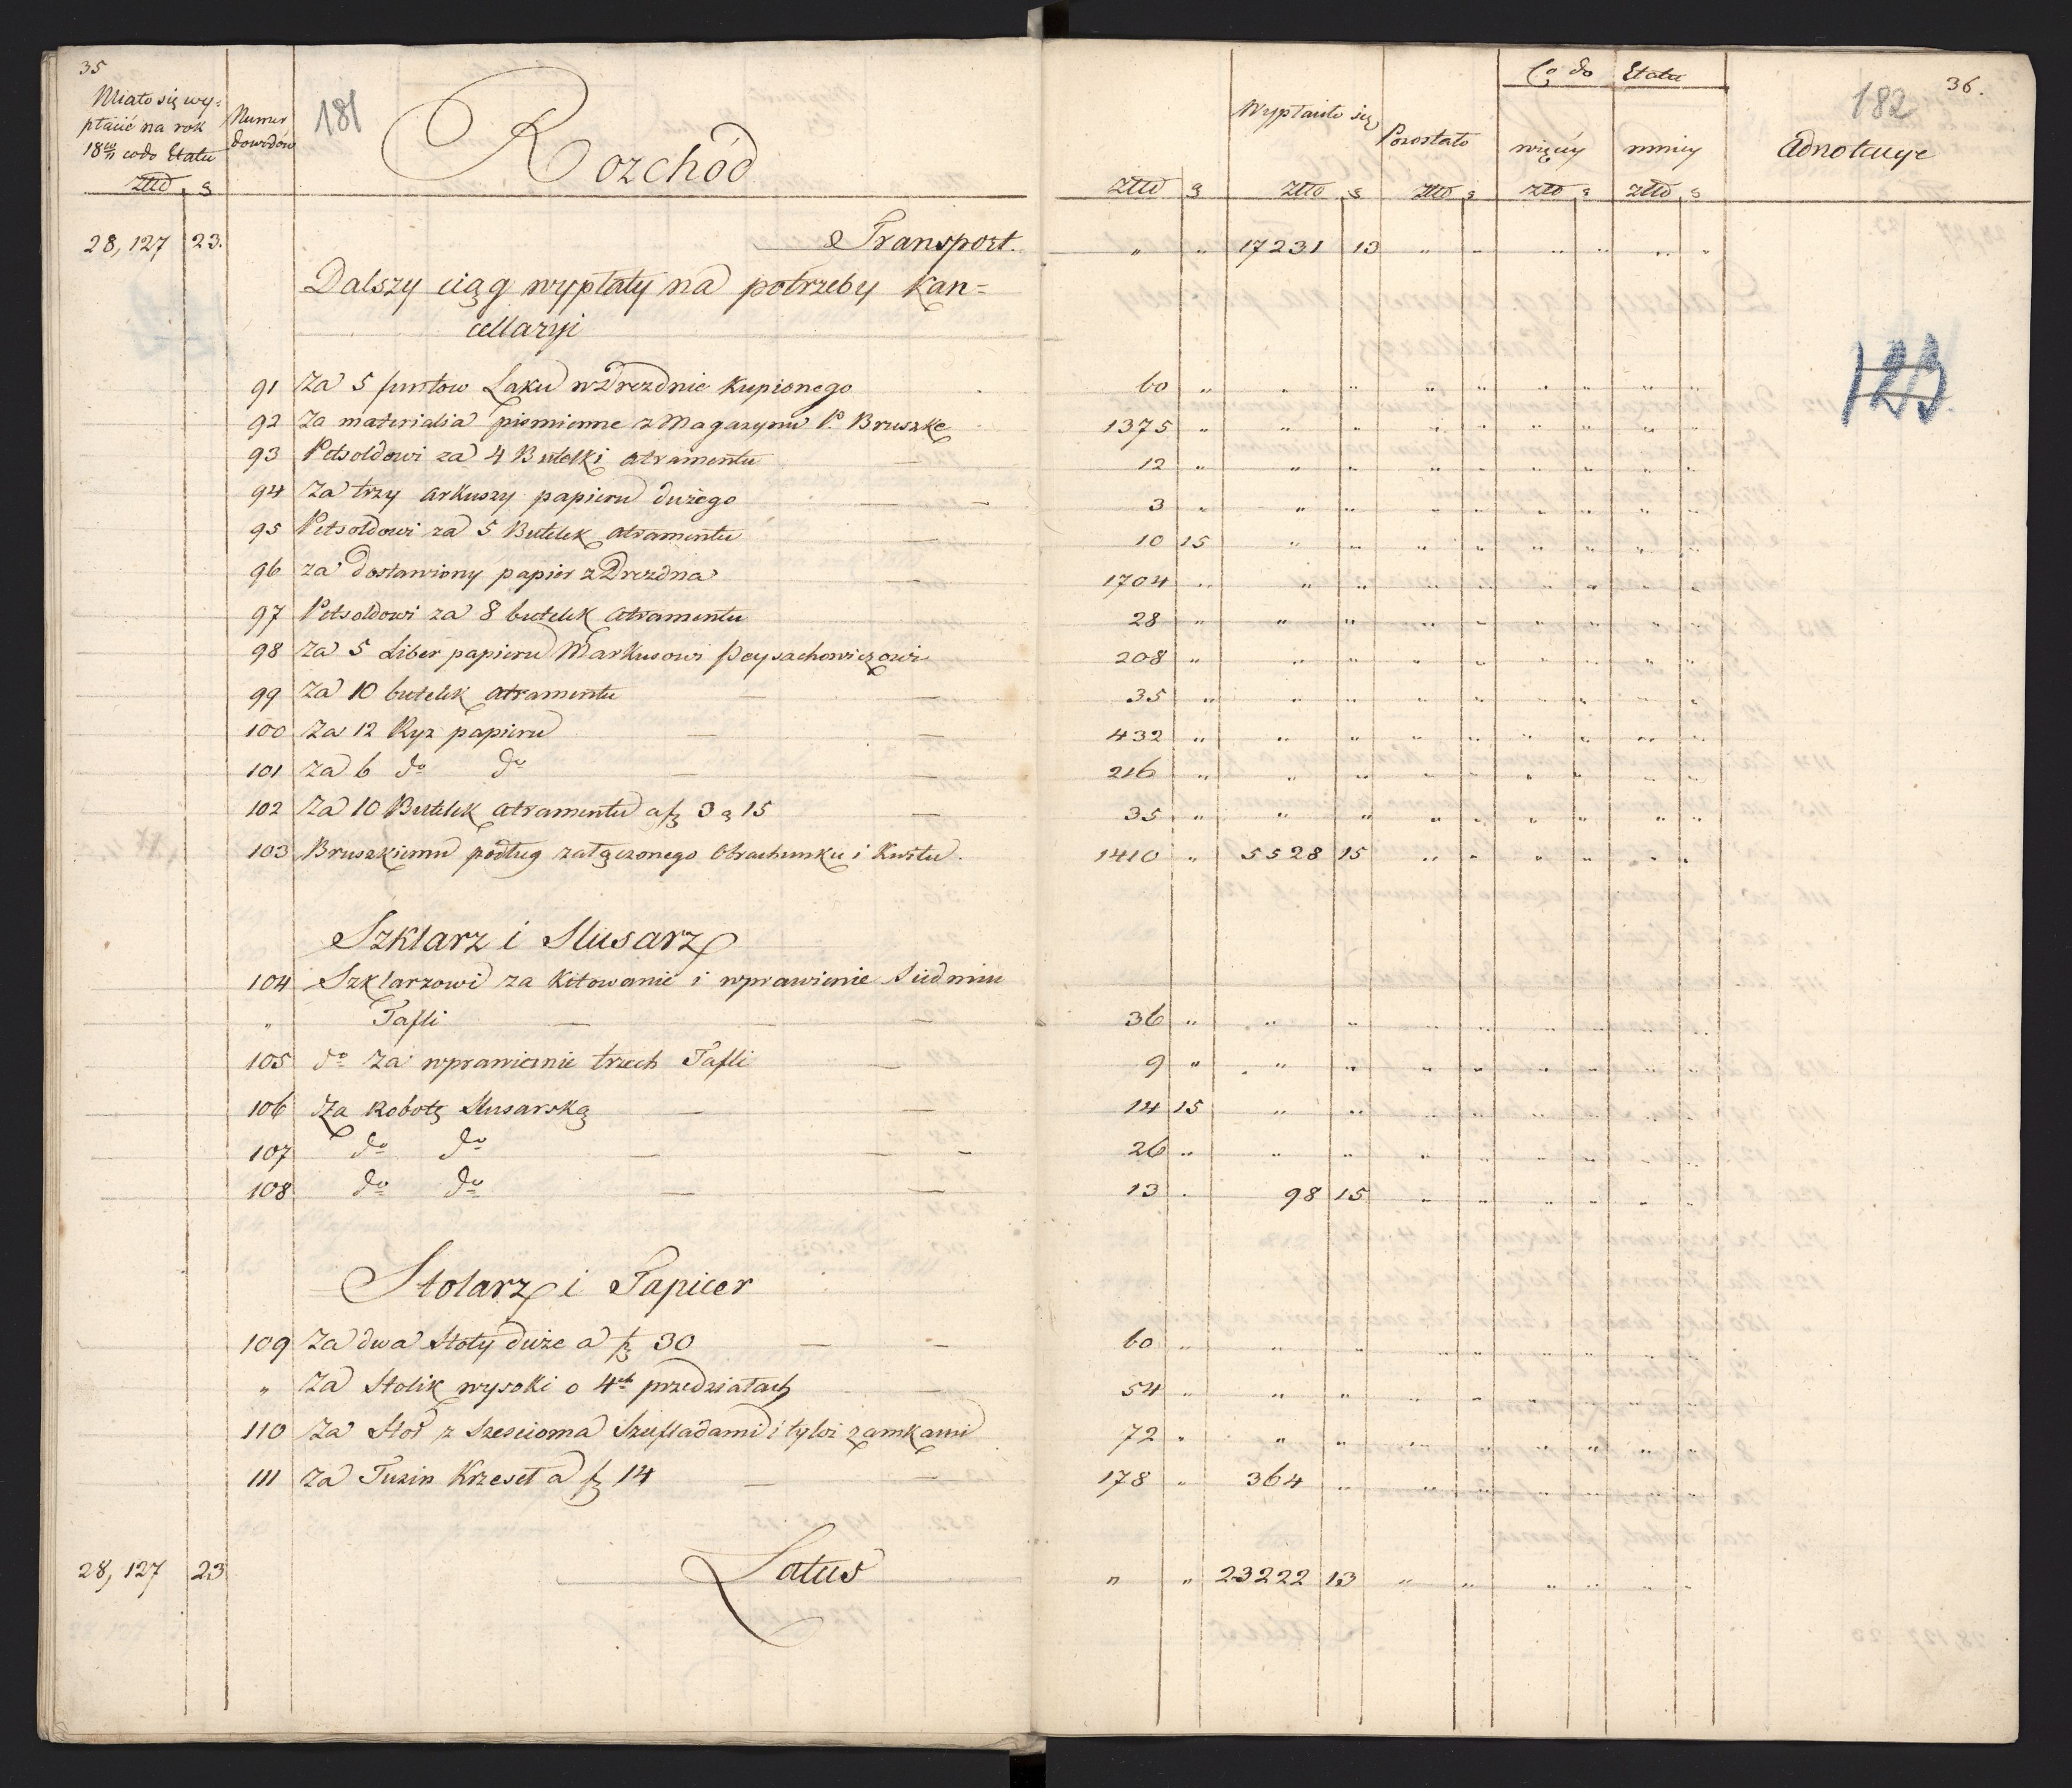 35
Miało się wy=
płacić na rok
18 10/11 co do Etatu
złło g
Numer
dowodów
181
Rozchód
Co do Etatu
36.
182
Wypłaciło się
Pozostało
więcy
mniey
Adnotacye
złło g złło g złło g złło g złło g
28,127 23. Transport. " " 17231 13 " " " " " "
Dalszy ciąg wypłaty na potrzeby Kan=
cellaryi
123
91 Za 5 funtow Laku w Dreznie kupionego 60 "
92 Za materialia piśmienne z Magazynu P. Bruszke 1375 "
93 Petsoldowi za 4 Butelki atramentu 12 "
94 Za trzy arkuszy papieru dużego 3 "
95 Petsoldowi za 5 Butelek atramentu 10 15
96 za dostawiony papier z Drezdna 1704 "
97 Petsoldowi za 8 butelek atramentu 28 "
98 Za 5 Liber papieru Markusowi Peysachowiczowi 208 "
99 Za 10 butelek atramentu 35 "
100 Za 12 Ryz papieru 432 "
101 Za 6 do do 216 "
102 Za 10 Butelek atramentu a f 3 g 15 35 "
103 Bruszkiemu podług załączonego Obrachunku i Kwitu. 1410 " 5528 15
Szklarz i Slusarz
104 Szklarzowi za Kitowanie i wprawienie Siedmiu
" Tafli 36 "
105 do za wprawienie trzech Tafli 9 "
106 Za Robotę Slusarską 14 15
107 do do 26 "
108 do do 13 . 98 15
Stolarz i Tapicer
109 Za dwa Stoły duże a f 30 60 "
" Za Stolik wysoki o 4ch przedziałach 54 "
110 Za Stoł z Szescioma Szufladami i tyloż zamkami 72 "
111 Za Tuzin Krzeseł a f 14 178 " 364 "
28,127 23 Latus " " 23222 13 " " " " " "